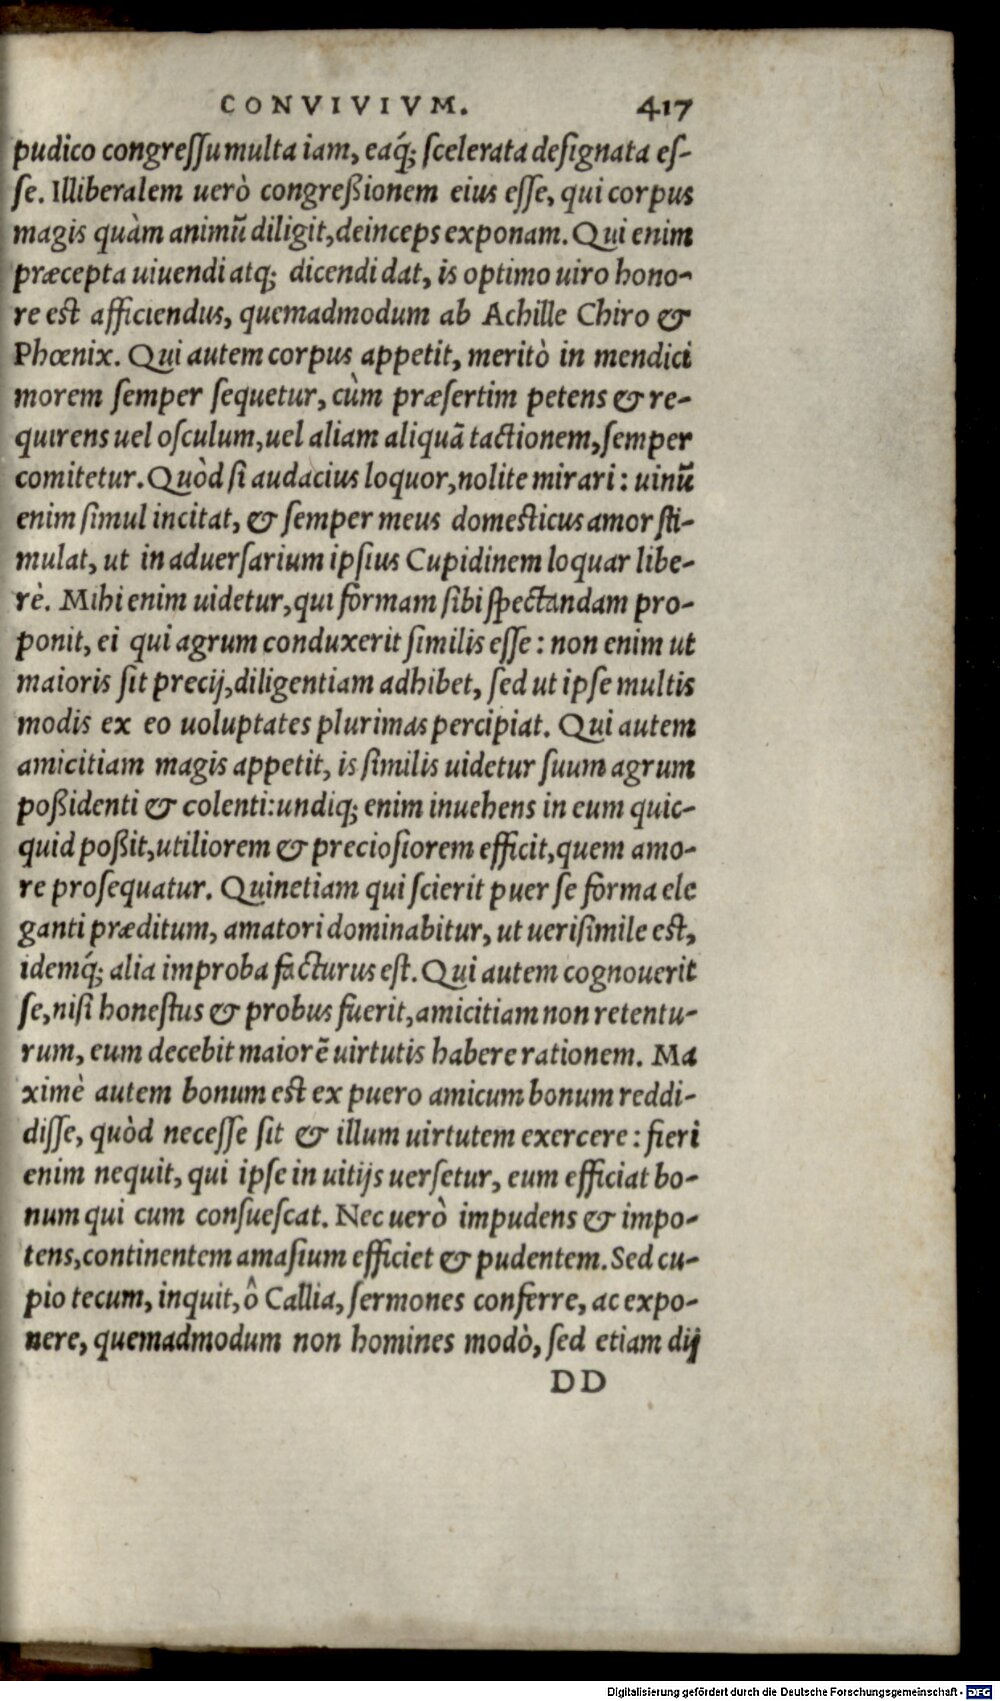 CONVIVIVM. 417
pudico congreſſu multa iam, eaq́; ſcelerata deſignata eſ-
ſe. Illiberalem uerò congreßionem eius eſſe, qui corpus
magis quàm animũ diligit, deinceps exponam. Qui enim
præcepta uiuendi atq; dicendi dat, is optimo uiro hono-
re est afficiendus, quemadmodum ab Achille Chiro &
Phœnix. Qui autem corpus appetit, meritò in mendici
morem ſemper ſequetur, cùm præſertim petens & re-
quirens uel oſculum, uel aliam aliquã tactionem, ſemper
comitetur. Quòd ſi audacius loquor, nolite mirari: uinũ
enim ſimul incitat, & ſemper meus domesticus amor ſti-
mulat, ut in aduerſarium ipſius Cupidinem loquar libe-
rè. Mihi enim uidetur, qui formam ſibi ſpectandam pro-
ponit, ei qui agrum conduxerit ſimilis eſſe: non enim ut
maioris ſit precij, diligentiam adhibet, ſed ut ipſe multis
modis ex eo uoluptates plurimas percipiat. Qui autem
amicitiam magis appetit, is ſimilis uidetur ſuum agrum
poßidenti & colenti: undiq; enim inuehens in eum quic-
quid poßit, utiliorem & precioſiorem efficit, quem amo-
re proſequatur. Quinetiam qui ſcierit puer ſe forma ele
ganti præditum, amatori dominabitur, ut ueriſimile est,
idemq́; alia improba facturus eſt. Qui autem cognouerit
ſe, niſi honeſtus & probus fuerit, amicitiam non retentu-
rum, eum decebit maiorẽ uirtutis habere rationem. Ma
ximè autem bonum est ex puero amicum bonum reddi-
diſſe, quòd neceſſe ſit & illum uirtutem exercere: fieri
enim nequit, qui ipſe in uitijs uerſetur, eum efficiat bo-
num qui cum conſueſcat. Nec uerò impudens & impo-
tens, continentem amaſium efficiet & pudentem. Sed cu-
pio tecum, inquit, ô Callia, ſermones conferre, ac expo-
nere, quemadmodum non homines modò, ſed etiam dij
DD
Digitalisierung gefördert durch die Deutsche Forschungsgemeinschaft - DFG